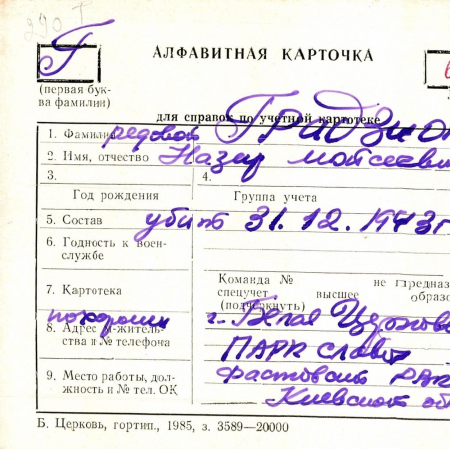 290 Г
Г
АЛФАВИТНАЯ КАРТОЧКА
(первая бук-
ва фамилии)
для справок по учетной картотеке
1. Фамилия рядовой
2. Имя, отчество Назар Мойсееви
3. 4.
Год рождения Группа учета
5. Состав убит 31.12.1943г
6. Годность к воен-
службе
Команда № не предназ
7. Картотека спецучет высшее образо
(подчеркнуть)
похоронен г. Белая Церковь
8. Адрес м-житель-
ства и № телефона ПАРК Славы
9. Место работы, дол- Фастовский РВК
жность и № тел. ОК Киевской об
Б. Церковь, гортип., 1985, з. 3589—20000